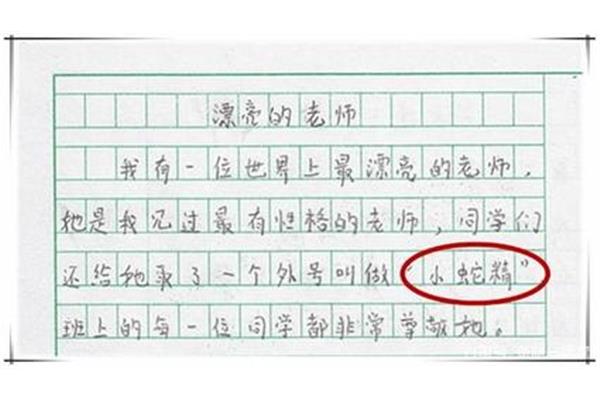 漂亮的老师
我有一位世界上最漂亮的老师，
她是我见过最有性格的老师，同学们
还给她取了一个外号叫做“小蛇精”
班上的每一位同学都非常尊敬她。